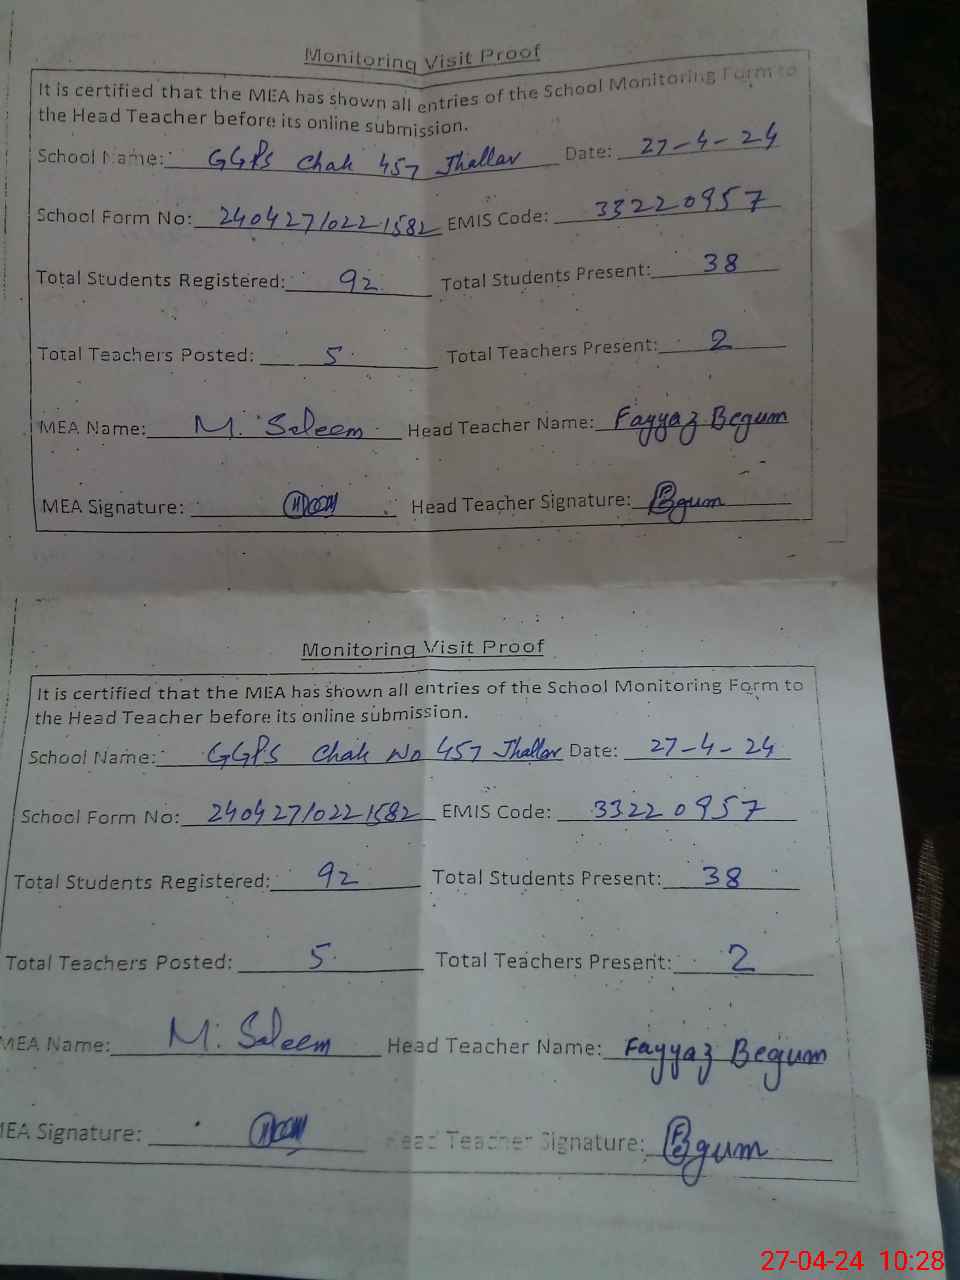 Monitoring Visit Proof
It is certified that the MEA has shown all entries of the School Monitoring Form to
the Head Teacher before its online submission.
School Name: GGPS Chak 457 Jhallar Date: 27-4-24
School Form No: 240427/0221582 EMIS Code: 33220957
Total Students Registered: 92 Total Students Present: 38
Total Teachers Posted: 5 Total Teachers Present: 2
MEA Name: M. Saleem Head Teacher Name: Fayyaz Begum
MEA Signature: Head Teacher Signature: Bgum
Monitoring Visit Proof
It is certified that the MEA has shown all entries of the School Monitoring Form to
the Head Teacher before its online submission.
School Name: GGPS Chak No 457 Jhallar Date: 27-4-24
School Form No: 240427/0221582 EMIS Code: 33220957
Total Students Registered: 92 Total Students Present: 38
Total Teachers Posted: 5 Total Teachers Present: 2
MEA Name: M. Saleem Head Teacher Name: Fayyaz Begum
MEA Signature: Head Teacher Signature: Bgum
27-04-24 10:28